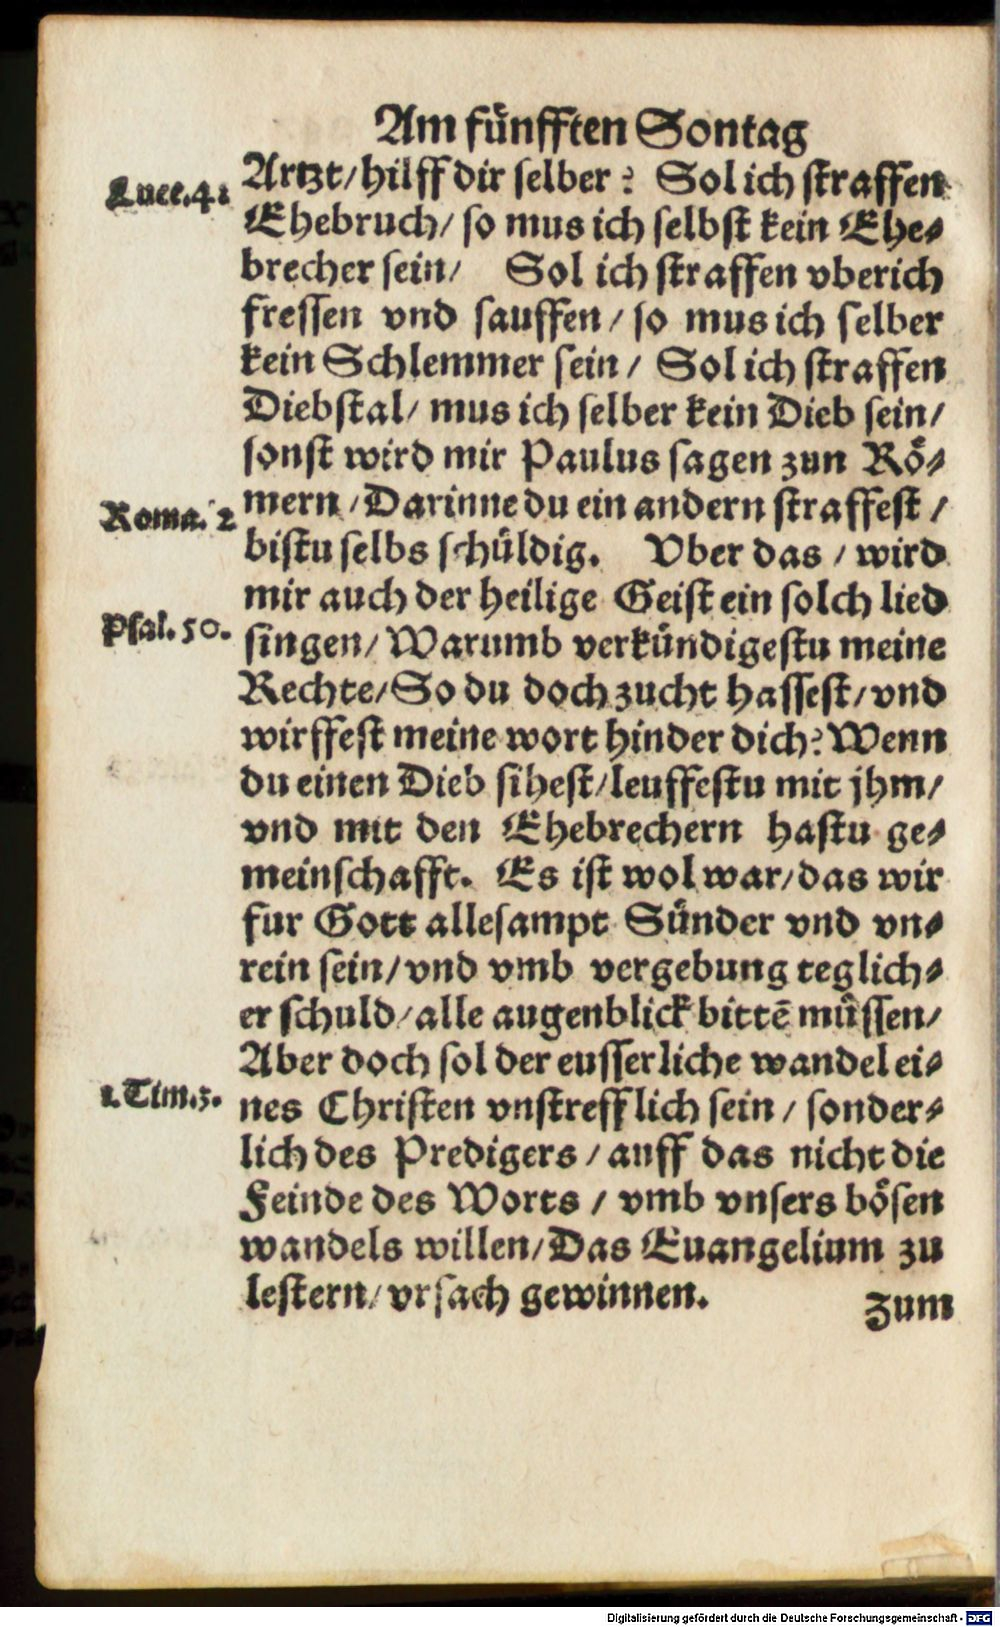 Am fünfften Sontag
Lucе.4.
Artzt/ hilff dir selber? Sol ich straffen
Ehebruch/ so mus ich selbst kein Ehe-
brecher sein/ Sol ich straffen vberich
fressen vnd sauffen/ so mus ich selber
kein Schlemmer sein/ Sol ich straffen
Diebstal/ mus ich selber kein Dieb sein/
sonst wird mir Paulus sagen zun Rö-
Roma. 2
mern/ Darinne du ein andern straffest/
bistu selbs schüldig. Vber das/ wird
mir auch der heilige Geist ein solch lied
Psal.50.
singen/ Warumb verkündigestu meine
Rechte/ So du doch zucht hassest/ vnd
wirffest meine wort hinder dich? Wenn
du einen Dieb sihest/ leuffestu mit jhm/
vnd mit den Ehebrechern hastu ge-
meinschafft. Es ist wol war/ das wir
fur Gott allesampt Sünder vnd vn-
rein sein/ vnd vmb vergebung teglich-
er schuld/ alle augenblick bittē müssen/
Aber doch sol der eusserliche wandel ei-
1.Tim.3.
nes Christen vnstrefflich sein/ sonder-
lich des Predigers/ auff das nicht die
Feinde des Worts/ vmb vnsers bösen
wandels willen/ Das Euangelium zu
lestern/ vrsach gewinnen.
Zum
Digitalisierung gefördert durch die Deutsche Forschungsgemeinschaft - DFG